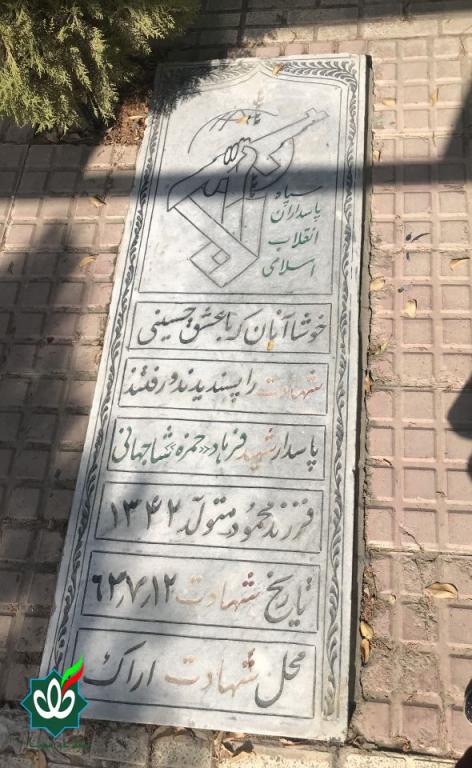 سپاه
پاسداران
انقلاب
اسلامی
خوشا آنان که با عشق حسینی
شهادت را پسندیدند و رفتند
پاسدار شهید فرهاد «حمزه» شاجهانی
فرزند محمود متولد ۱۳۴۲
تاریخ شهادت ۶۲٫۷٫۱۲
محل شهادت اراک